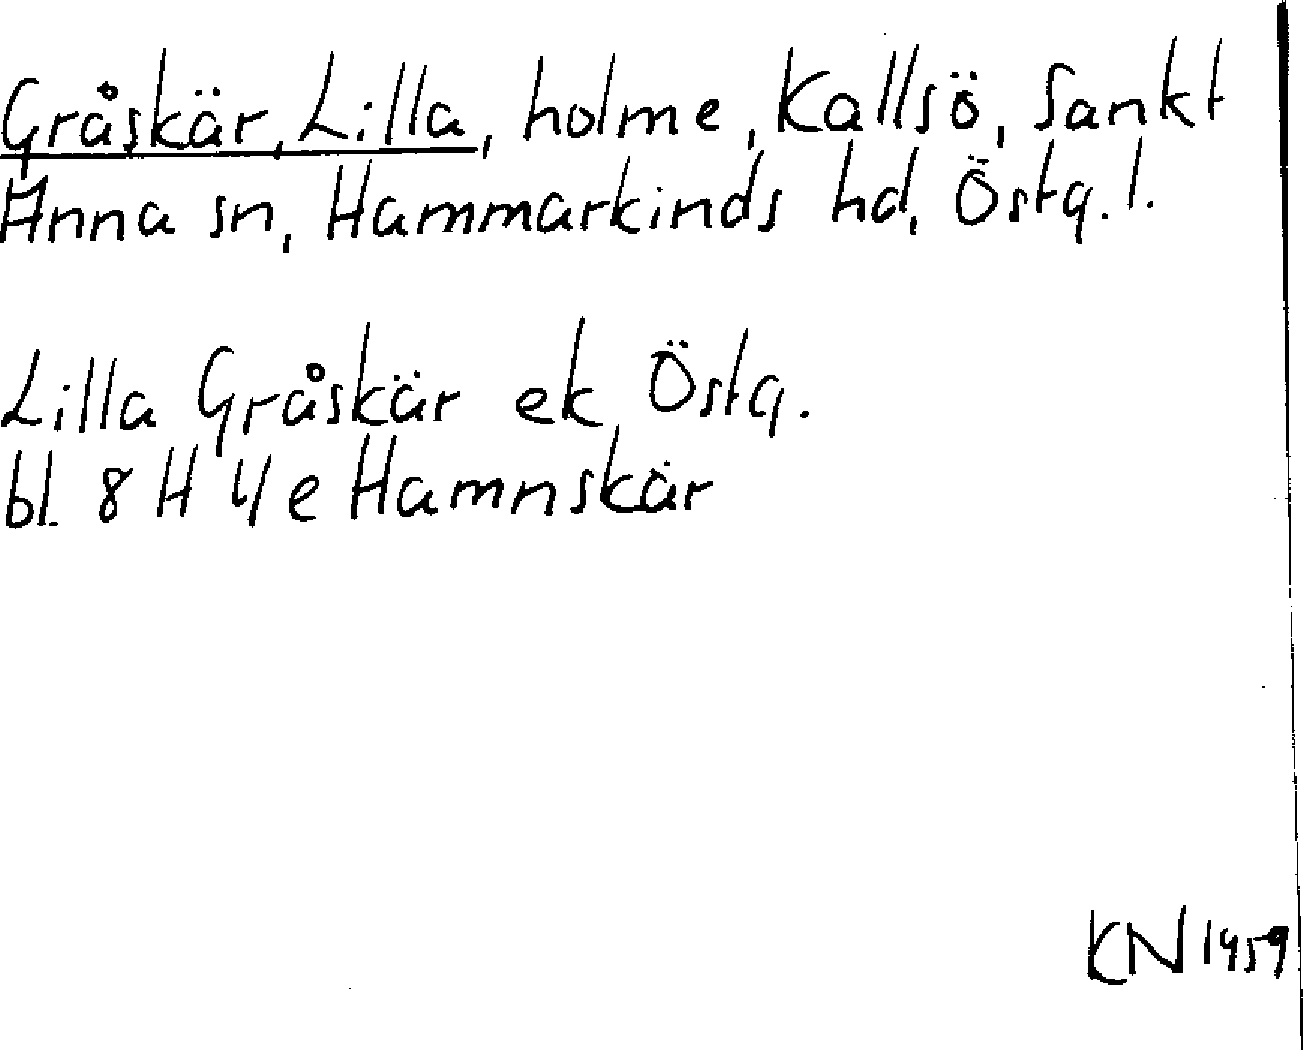 Gråskär, Lilla, holme, Kallsö, Sankt
Anna sn, Hammarkinds hd, Östg. l.
Lilla Gråskär ek, Östg.
bl. 8 H 4 e Hamnskär
KN 1959